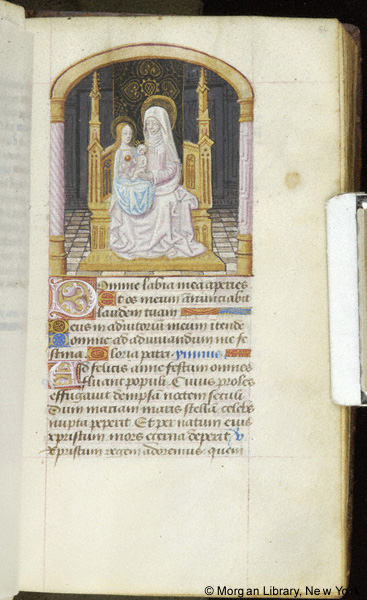 Domine labia mea aperies
Et os meum annunciabit
laudem tuam
Deus in adiutorium meum itende
Domine ad adiuuandum me fe
stina Gloria patri ymnus
Ad felicis anne festum omnes
fluant populi Cuius proles
effugauit dempsa noctem seculi
Dum mariam maris stellam celebs
nupta peperit Et per natum eius
xpristum mors eterna deperit
xpristum regem adoremus quem
© Morgan Library, New York